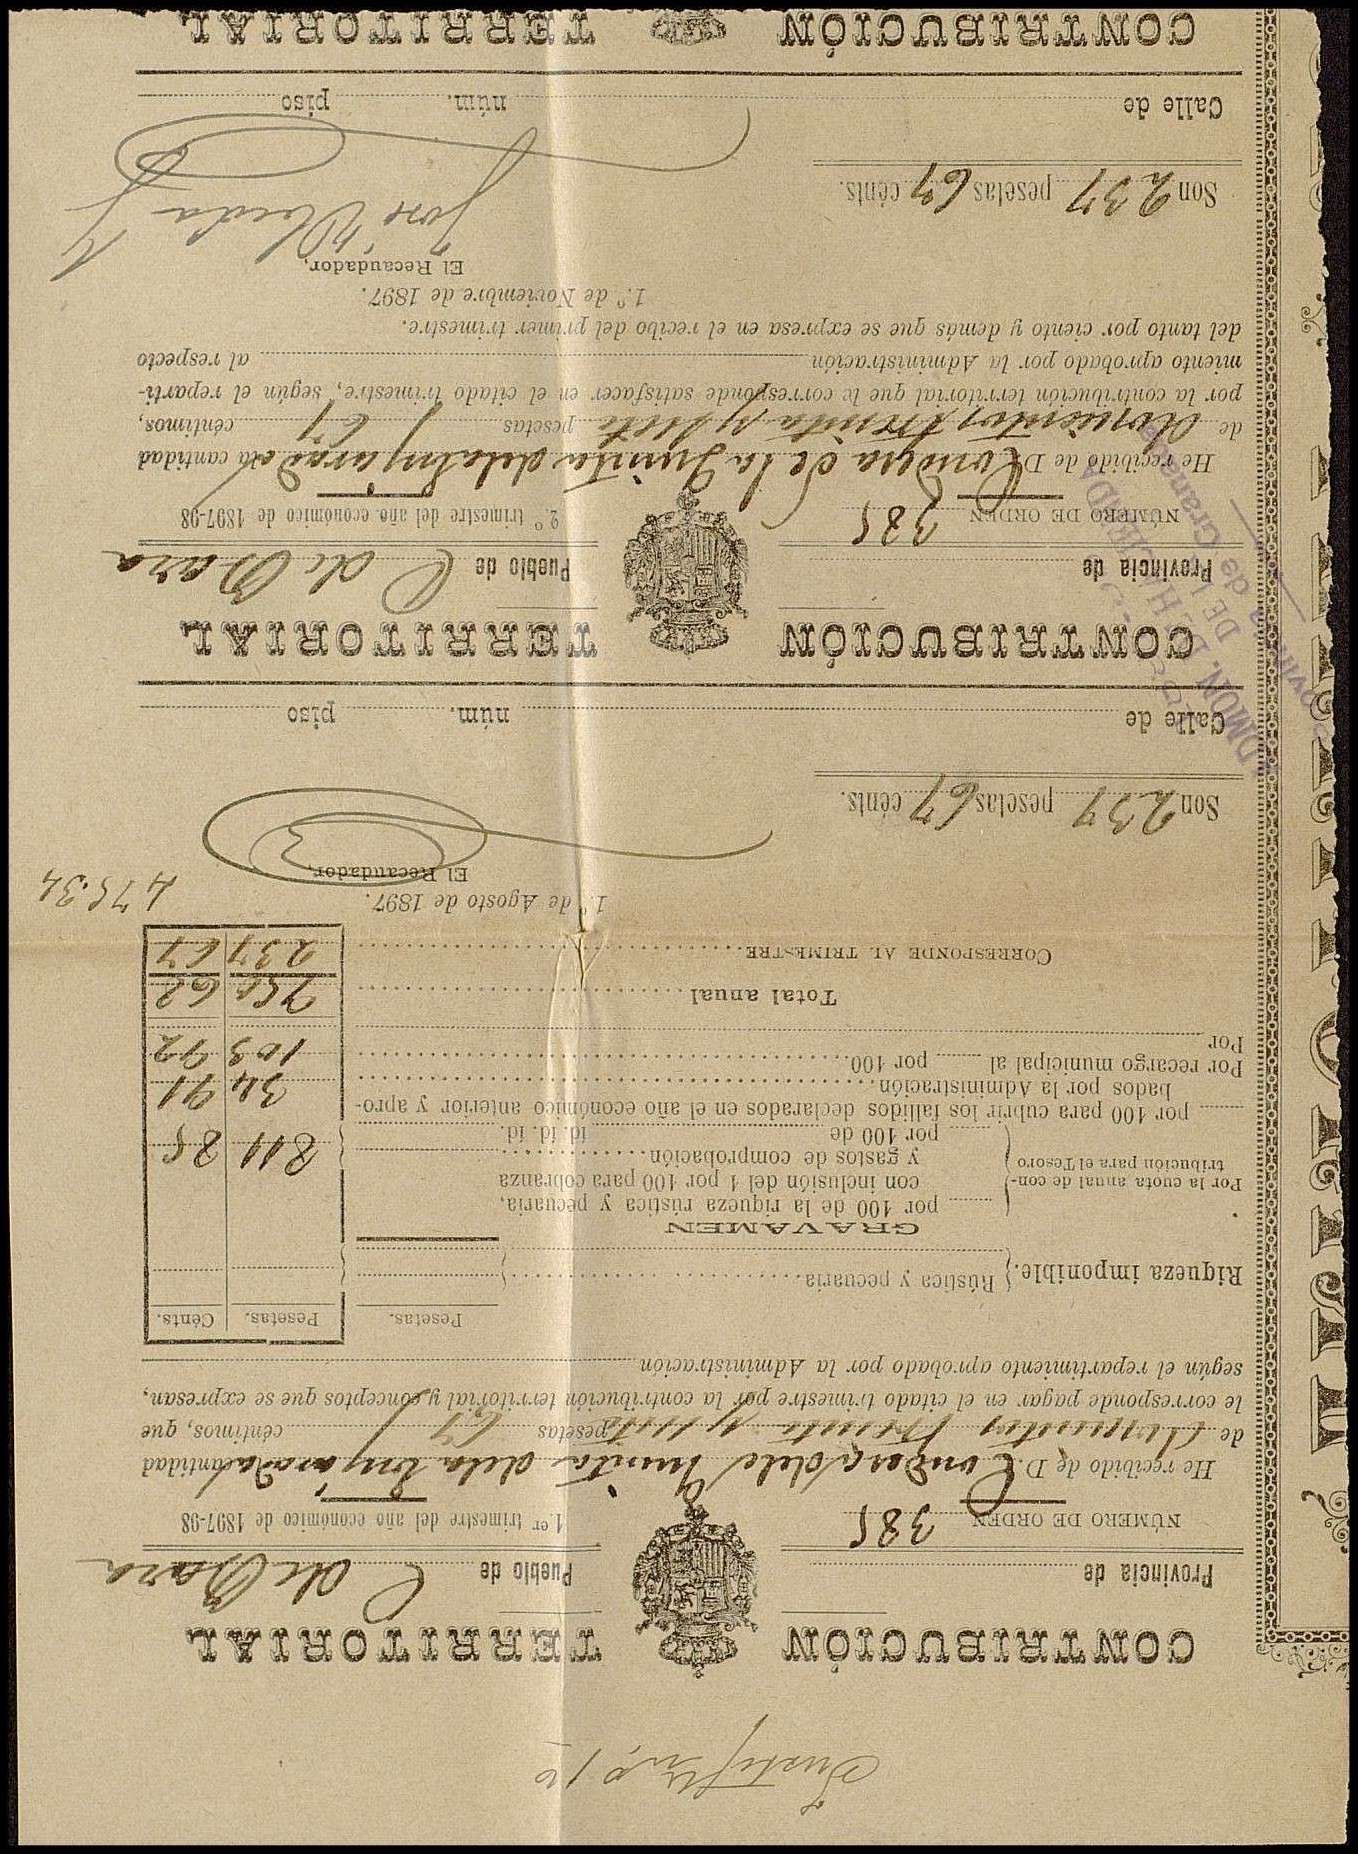 CONTRIBUCIÓN TERRITORIAL
Provincia de
Pueblo de C de Baza
NÚMERO DE ORDEN 385
1.er trimestre del año económico de 1897-98
He recibido de D. Condesa de la Quinta de la Enjarada la cantidad
de doscientas treinta y siete pesetas 67 céntimos, que
le corresponde pagar en el citado trimestre por la contribución territorial y conceptos que se expresan,
según el repartimiento aprobado por la Administración
Pesetas. Pesetas. Cénts.
Riqueza imponible. Rústica y pecuaria
GRAVAMEN
Por la cuota anual de contribución para el Tesoro
por 100 de la riqueza rústica y pecuaria,
con inclusión del 1 por 100 para cobranza
y gastos de comprobación 811 85
por 100 de id. id. id.
por 100 para cubrir los fallidos declarados en el año económico anterior y apro-
bados por la Administración 34 91
Por recargo municipal al por 100. 103 92
Por
Total anual 950 68
CORRESPONDE AL TRIMESTRE 237 67
1.º de Agosto de 1897.
475.34
El Recaudador,
Son 237 pesetas 67 cénts.
Calle de núm. piso
CONTRIBUCIÓN TERRITORIAL
Provincia de
Pueblo de C de Baza
NÚMERO DE ORDEN 385
2.º trimestre del año económico de 1897-98
He recibido de D. Condesa de la Quinta de la Enjarada la cantidad
de doscientos treinta y siete pesetas 67 céntimos,
por la contribución territorial que le corresponde satisfacer en el citado trimestre, según el reparti-
miento aprobado por la Administración al respecto
del tanto por ciento y demás que se expresa en el recibo del primer trimestre.
1.º de Noviembre de 1897.
El Recaudador,
José
Son 237 pesetas 67 cénts.
Calle de núm. piso
CONTRIBUCIÓN TERRITORIAL
ADMON. DE HACIENDA
DE LA
Provincia de Granada